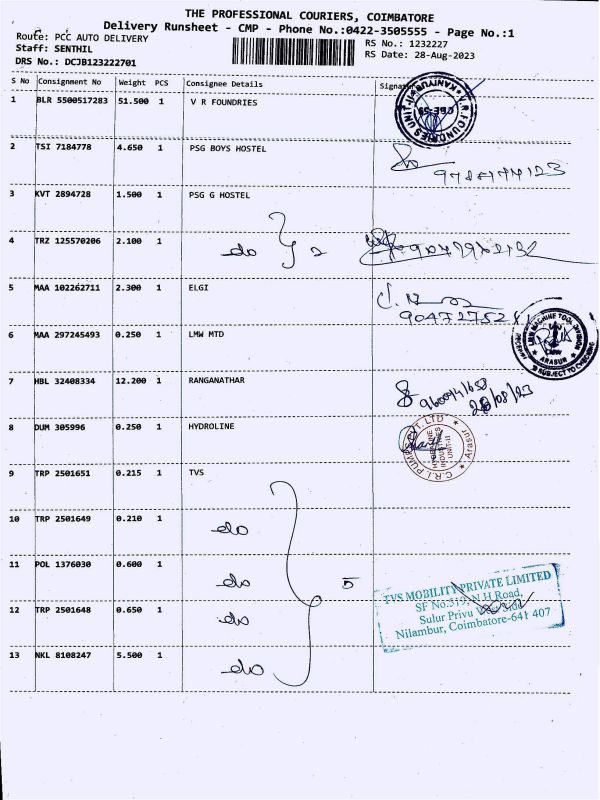 THE PROFESSIONAL COURIERS, COIMBATORE
Delivery Runsheet - CMP - Phone No.:0422-3505555 - Page No.:1
Route: PCC AUTO DELIVERY
RS No.: 1232227
Staff: SENTHIL
RS Date: 28-Aug-2023
DRS No.: DCJB123222701
S No Consignment No Weight PCS Consignee Details Signature
1 BLR 5500517283 51.500 1 V R FOUNDRIES
V.R. FOUNDRIES UNIT-II CBE-59
2 TSI 7184778 4.650 1 PSG BOYS HOSTEL
3 KVT 2894728 1.500 1 PSG G HOSTEL
4 TRZ 125570206 2.100 1 do 2
5 MAA 102262711 2.300 1 ELGI
6 MAA 297245493 0.250 1 LMW MTD
LMW MACHINE TOOL DIVISION
LMW
ARASUR
SUBJECT TO CHECKING
7 HBL 32408334 12.200 1 RANGANATHAR
28/08/23
8 DUM 305996 0.250 1 HYDROLINE
C.R.I. PUMPS PVT. LTD Arasur
INDUSTRIES
UNIT-II
9 TRP 2501651 0.215 1 TVS
10 TRP 2501649 0.210 1 do
11 POL 1376030 0.600 1 do 5
TVS MOBILITY PRIVATE LIMITED
SF No.319, N.H Road,
Sulur Privu
Nilambur, Coimbatore-641 407
12 TRP 2501648 0.650 1 do
13 NKL 8108247 5.500 1 do